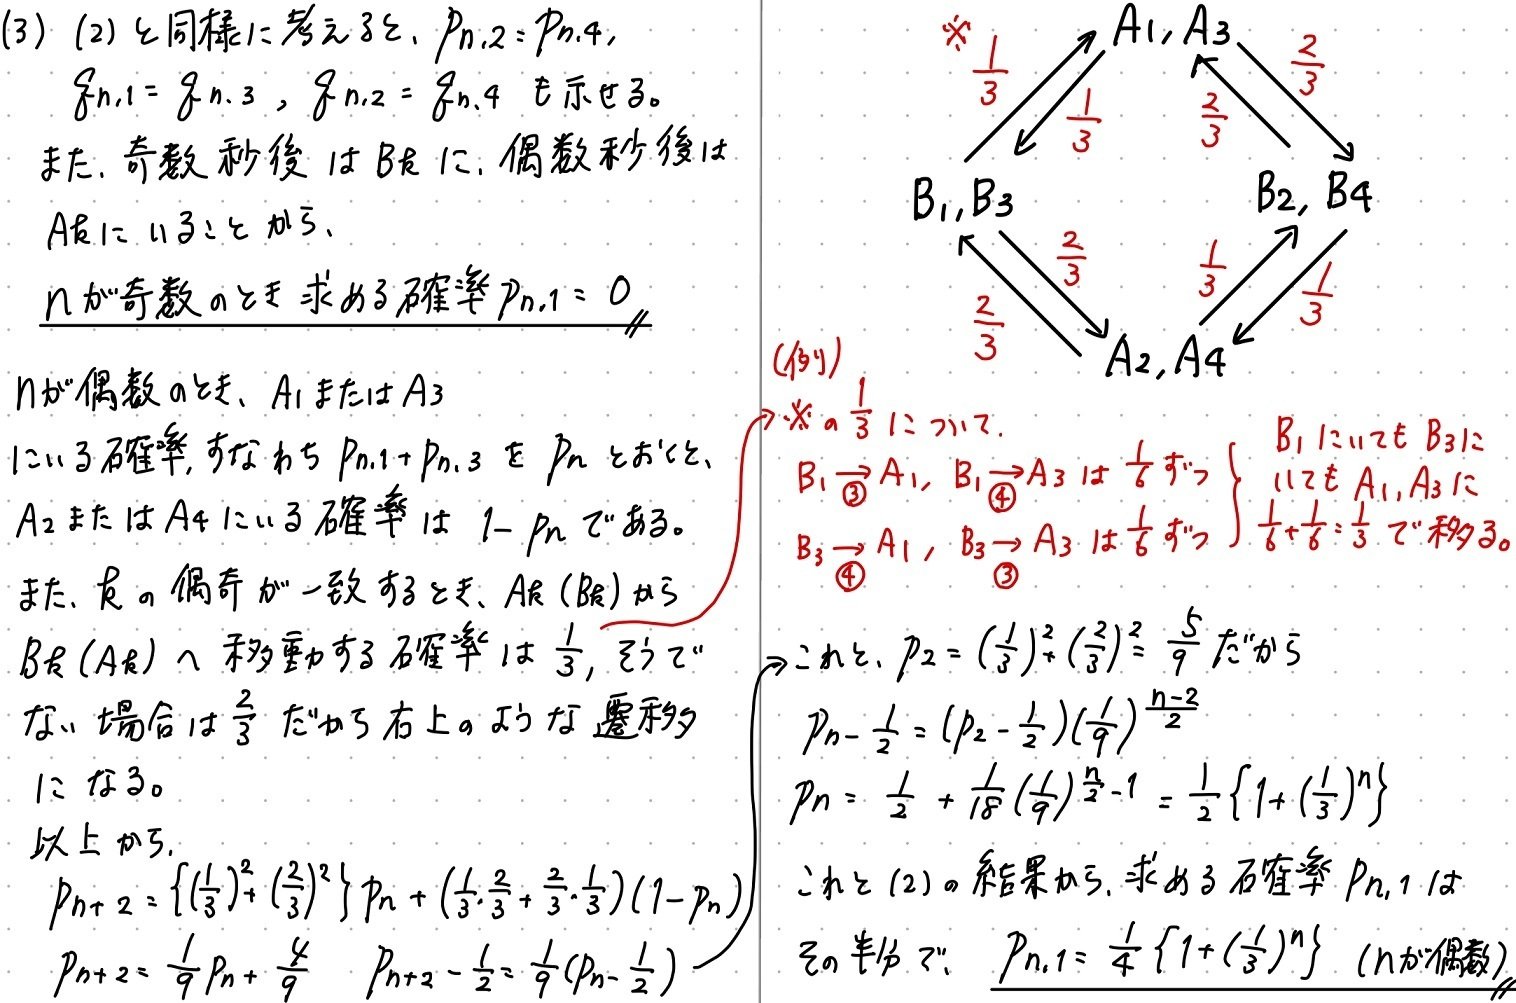 (3) (2)と同様に考えると、Pn,2=Pn,4,
qn,1=qn,3, qn,2=qn,4 も示せる。
また、奇数秒後はBkに、偶数秒後は
Akにいることから、
nが奇数のとき求める確率Pn,1=0
nが偶数のとき、A1またはA3
にいる確率,すなわちPn,1+Pn,3をPnとおくと、
A2またはA4にいる確率は1-Pnである。
また、kの偶奇が一致するとき、Ak(Bk)から
Bk(Ak)へ移動する確率は1/3,そうで
ない場合は2/3だから右上のような遷移
になる。
以上から,
Pn+2={(1/3)²+(2/3)²}Pn+(1/3・2/3+2/3・1/3)(1-Pn)
Pn+2=1/9Pn+4/9 Pn+2-1/2=1/9(Pn-1/2)
A1, A3
※ 1/3 1/3 2/3 2/3
B1, B3 B2, B4
2/3 2/3 1/3 1/3
A2, A4
(例)
※の1/3について.
B1→③A1, B1→④A3は1/6ずつ
B3→④A1, B3→③A3は1/6ずつ
B1にいてもB3に
いてもA1,A3に
1/6+1/6=1/3で移る。
これと、P2=(1/3)²+(2/3)²=5/9だから
Pn-1/2=(P2-1/2)(1/9)^((n-2)/2)
Pn=1/2+1/18(1/9)^(n/2-1)=1/2{1+(1/3)^n}
これと(2)の結果から、求める確率Pn,1は
その半分で、Pn,1=1/4{1+(1/3)^n} (nが偶数)